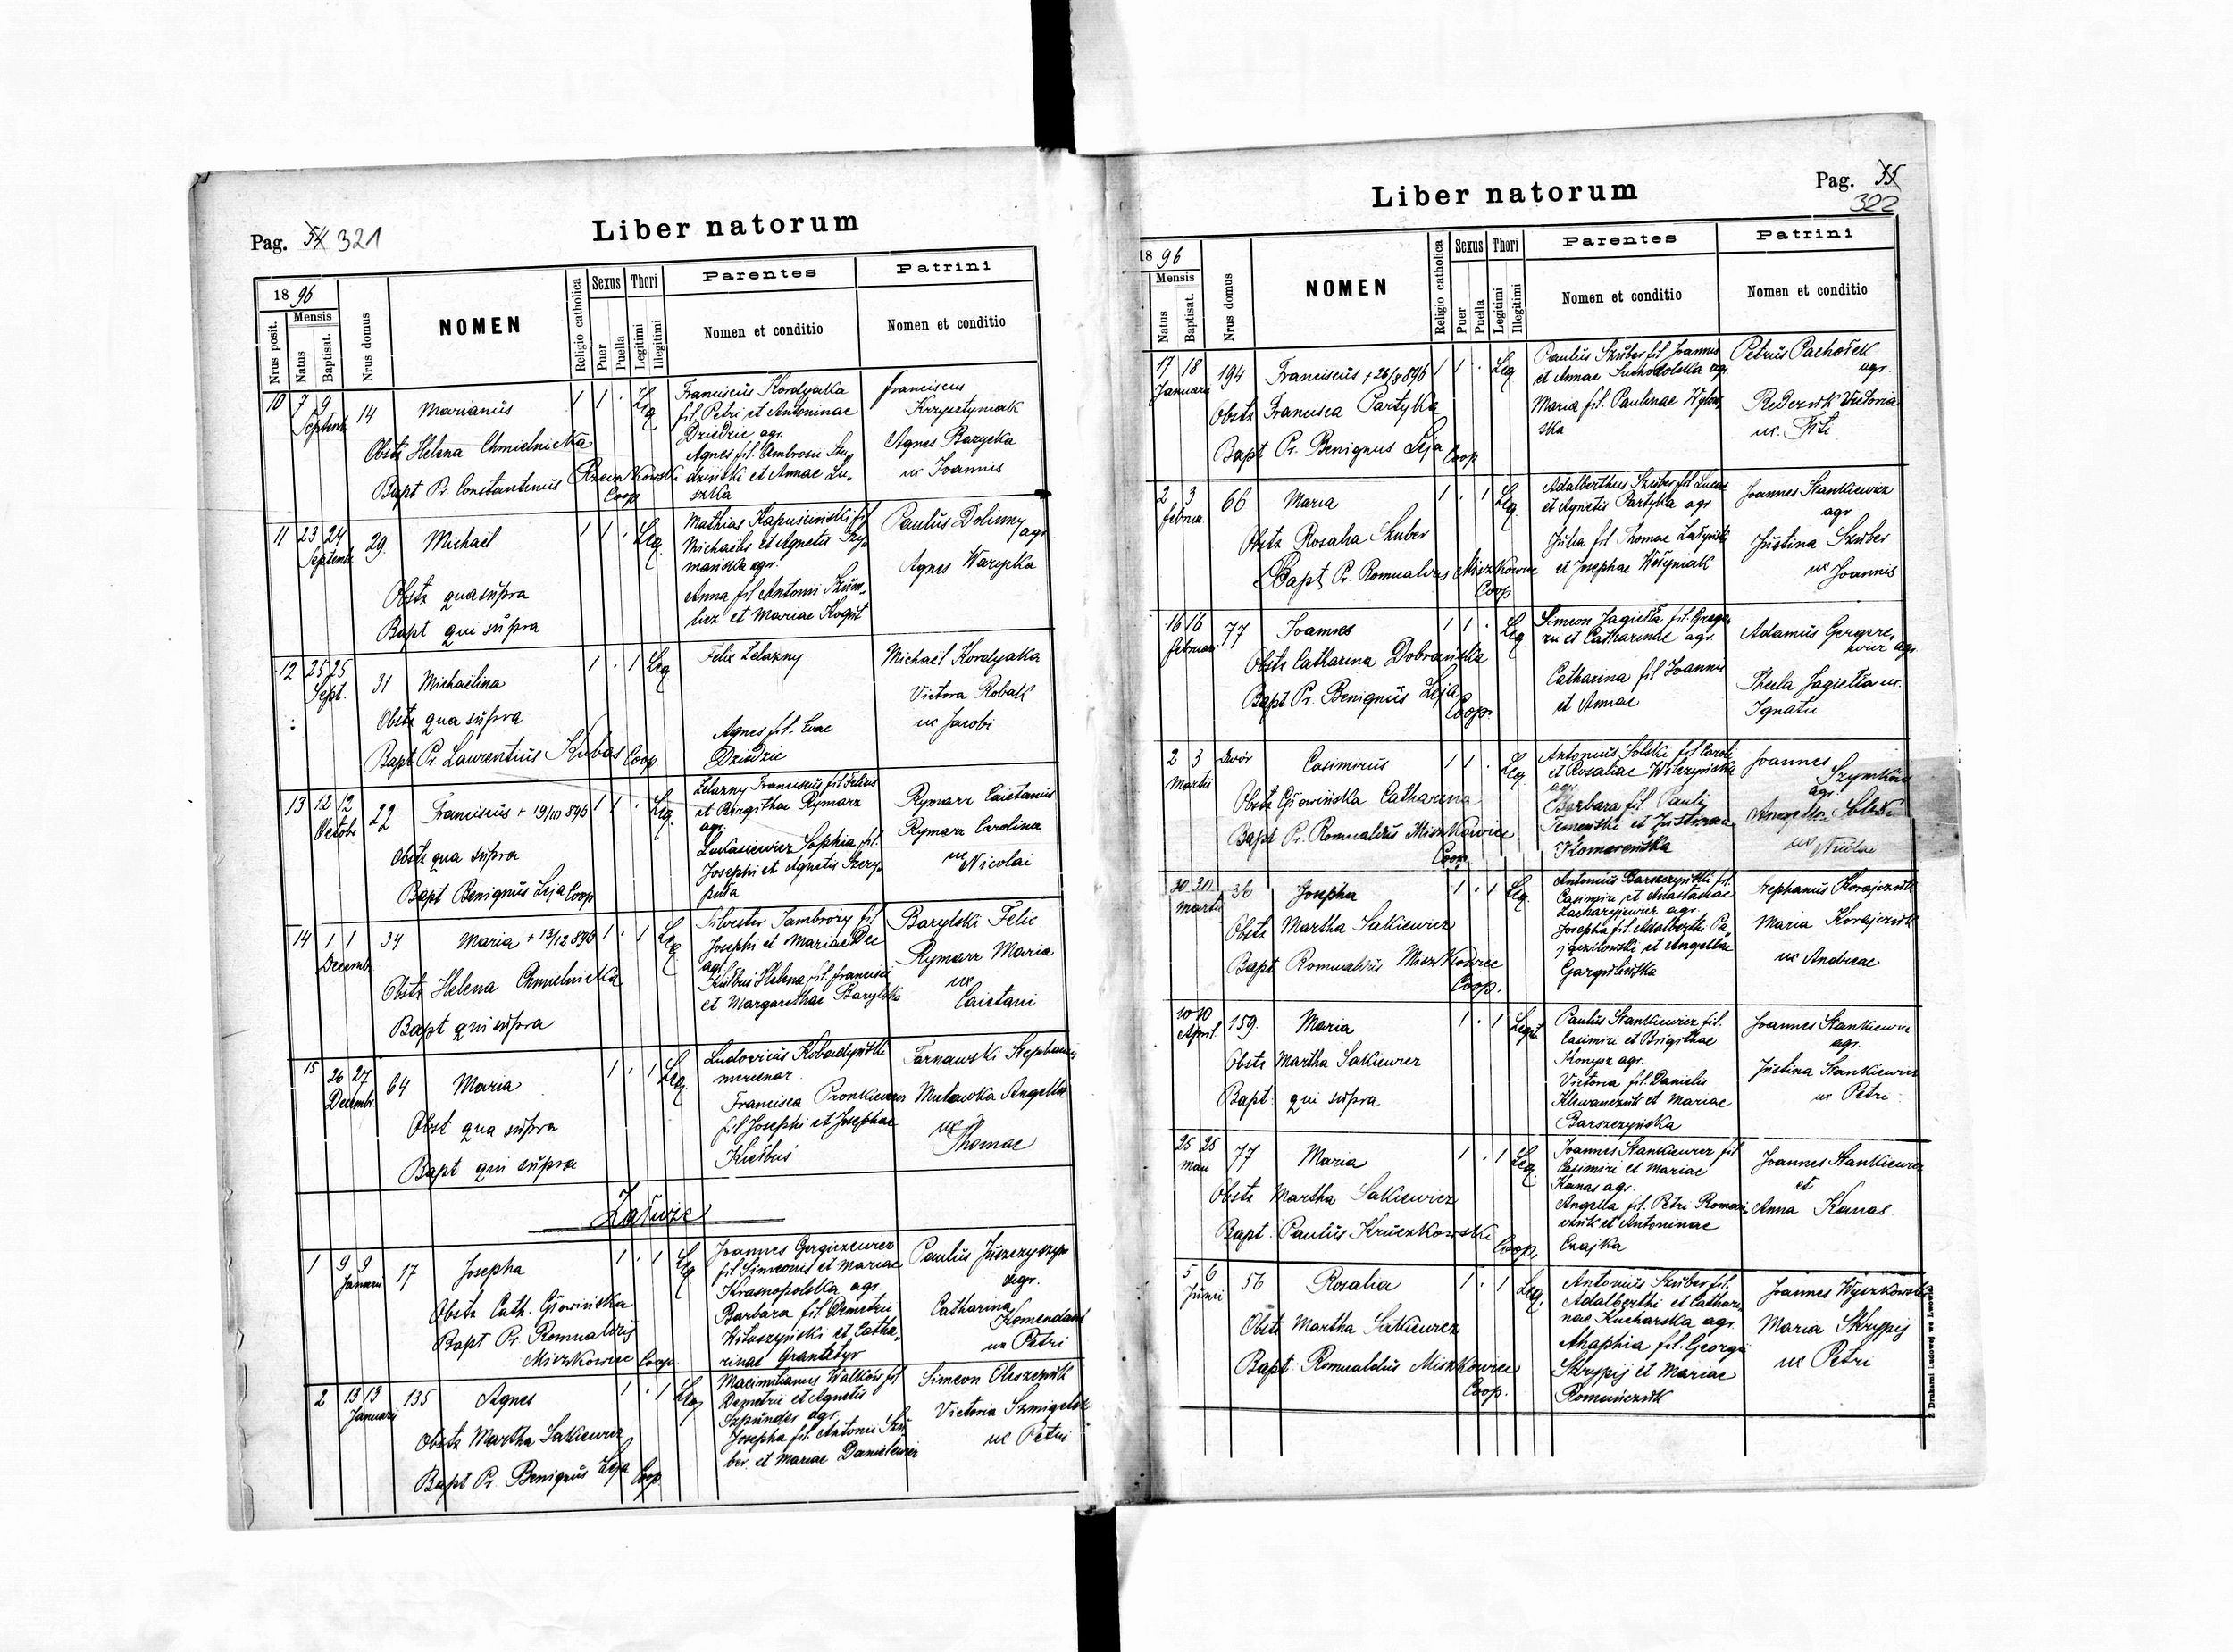 Pag. 54 321
Liber natorum
1896
Nrus posit.
Mensis
Natus
Baptisat.
Nrus domus
NOMEN
Religio catholica
Sexus
Puer
Puella
Thori
Legitimi
Illegitimi
Parentes
Nomen et conditio
Patrini
Nomen et conditio
10 7 9 Septemb 14 Marianus 1 1 . Leg
Obstr Helena Chmielnicka
Bapt Pr. Constantinus Coop
Franciscus Kordyaka
fil. Petri et Antoninae
Dziedzic agr.
Agnes fil. Ambrosii
et Annae
Franciscus
Krzysztyniak
Agnes Barycka
ux Joannis
11 23 24 Septemb 29. Michaël 1 1 . Leg.
Obstr qua supra
Bapt qui supra
Mathias Kapuściński fil
Michaelis et Agnetis
agr.
Anna fil Antonii
et Mariae Kogut
Paulus Dolinny
agr
Agnes Warzyka
12 25 25 Sept. 31 Michaëlina 1 . 1 Leg
Obstr qua supra
Bapt Pr. Laurentius Kubas Coop
Felix Żelazny
Agnes fil. Evae
Dziedzic
Michaël Kordyaka
Victora Robak
ux Jacobi
13 12 12 Octobr 22 Franciscus + 19/10 896 1 1 . Leg.
Obstr qua supra
Bapt Benignus Leja Coop
Żelazny Franciscus fil Felicis
et Brigithae Rymarz
agr.
Łukasiewicz Sophia fil.
Josephi et Agnetis
Rymarz Caietanus
Rymarz Carolina
ux Nicolai
14 1 1 Decemb 34 Maria + 13/12 896 1 . 1 Leg
Obstr Helena Chmielnicka
Bapt qui supra
Silvester Jambroży fil
Josephi et Mariae Dec
agr
Helena fil. Francisci
et Margarethae Barylska
Barylski Felix
Rymarz Maria
ux
Caietani
15 26 27 Decembr. 64 Maria 1 . 1 Leg.
Obst qua supra
Bapt qui supra
Ludovicus
mercenar.
Francisca Pronkiewicz
fil Josephi et Josephae
Kiełbus
Tarnawski Stephanus
Angella
ux
Thomae
Załuże
1 9 9 Januarii 17 Josepha 1 . 1 Leg
Obstr Cath. Głowińska
Bapt Pr. Romualdus
Miszkowicz Coop
Joannes Gerguzewicz
fil Simeonis et Mariae
Krasnopolska agr.
Barbara fil Demetrii
Witoszyński et Catha-
rinae
Paulus Juszczyszyn
agr.
Catharina
Komendant
ux Petri
2 13 13 Januarii 135 Agnes 1 . 1 Leg
Obstr Martha Sakiewicz
Bapt Pr. Benignus Leja Coop
Maximilianus Walków fil.
Demetrii et Agnetis
Szpunder agr
Josepha fil. Antonii Szu
ber et Mariae Danilewicz
Simeon Oleszczuk
Victoria
ux Petri
Liber natorum
Pag. 55
322
1896
Mensis
Natus
Baptisat.
Nrus domus
NOMEN
Religio catholica
Sexus
Puer
Puella
Thori
Legitimi
Illegitimi
Parentes
Nomen et conditio
Patrini
Nomen et conditio
17 18 Januarii 194 Franciscus + 26/8 896 1 1 . Leg
Obstr Francisca Partyka
Bapt Pr. Benignus Leja Coop
Paulus Szuber fil Joannis
et Annae Suchodolska agr.
Maria fil. Paulinae
Petrus Pachołek
agr.
Victoria
ux. Titi
2 3 Februa. 66 Maria 1 . 1 Leg.
Obstr Rosalia Szuber
Bapt Pr. Romualdus Miszkowicz
Coop
Adalberthus Szuber fil Lucae
et Agnetis Partyka agr.
Julia fil Thomae
et Josephae Woźyniak
Joannes Stankiewicz
agr
Justina Szuber
ux Joannis
16 16 Februar. 77 Joannes 1 1 . Leg
Obstr Catharina Dobrzańska
Bapt Pr. Benignus Leja
Coop.
Simeon Jagiełła fil. Grego
rii et Catharinae agr.
Catharina fil Joannis
et Annae
Adamus Gergere,
wicz agr
Thecla Jagiełła ux.
Ignatii
2 3 Martii Dwór Casimirus 1 1 . Leg.
Obstr Głowińska Catharina
Bapt Pr. Romualdus Miszkowicz
Coop.
Antonius Solski fil Caroli
et Rosaliae Wilczyńska
agr.
Barbara fil Pauli
et Justinae
Komareńska
Joannes
Szymków
agr.
Angella Solska
ux Nicolai
20 20 Martii 36 Josepha 1 . 1 Leg.
Obstr Martha Sakiewicz
Bapt Romualdus Miszkowicz
Coop.
Antonius Barszczyński fil.
Casimiri et Anastasiae
Zacharyjewicz agr.
Josepha fil. Adalberthi Pa
jączkowski et Angellae
Gargulińska
Stephanus Korajczuk
Maria Korajczuk
ux Andreae
10 10 April. 159. Maria 1 . 1 Legit.
Obstr Martha Sakiewicz
Bapt. qui supra
Paulus Stankiewicz fil.
Casimiri et Brigithae
Konysz agr.
Victoria fil. Danielis
Klewanczuk et Mariae
Barszczyńska
Joannes Stankiewicz
agr.
Justina Stankiewicz
ux Petri
25 25 Maii 77 Maria 1 . 1 Leg.
Obstr Martha Sakiewicz
Bapt: Paulus Kruczkowski
Coop.
Joannes Stankiewicz fil
Casimiri et Mariae
Kanas agr.
Angella fil. Petri Romań,
czuk et Antoninae
Czajka
Joannes Stankiewicz
et
Anna Kanas
5 6 Junii 56 Rosalia 1 . 1 Leg.
Obstr Martha Sakiewicz
Bapt: Romualdus Miszkowicz
Coop.
Antonius Szuber fil.
Adalberthi et Cathari-
nae Kucharska agr.
Ahaphia fil. Georgii
Skrypij et Mariae
Romańczuk
Joannes Wyszkowski
Maria Skrypij
ux Petri
Z Drukarni Ludowej we Lwowie